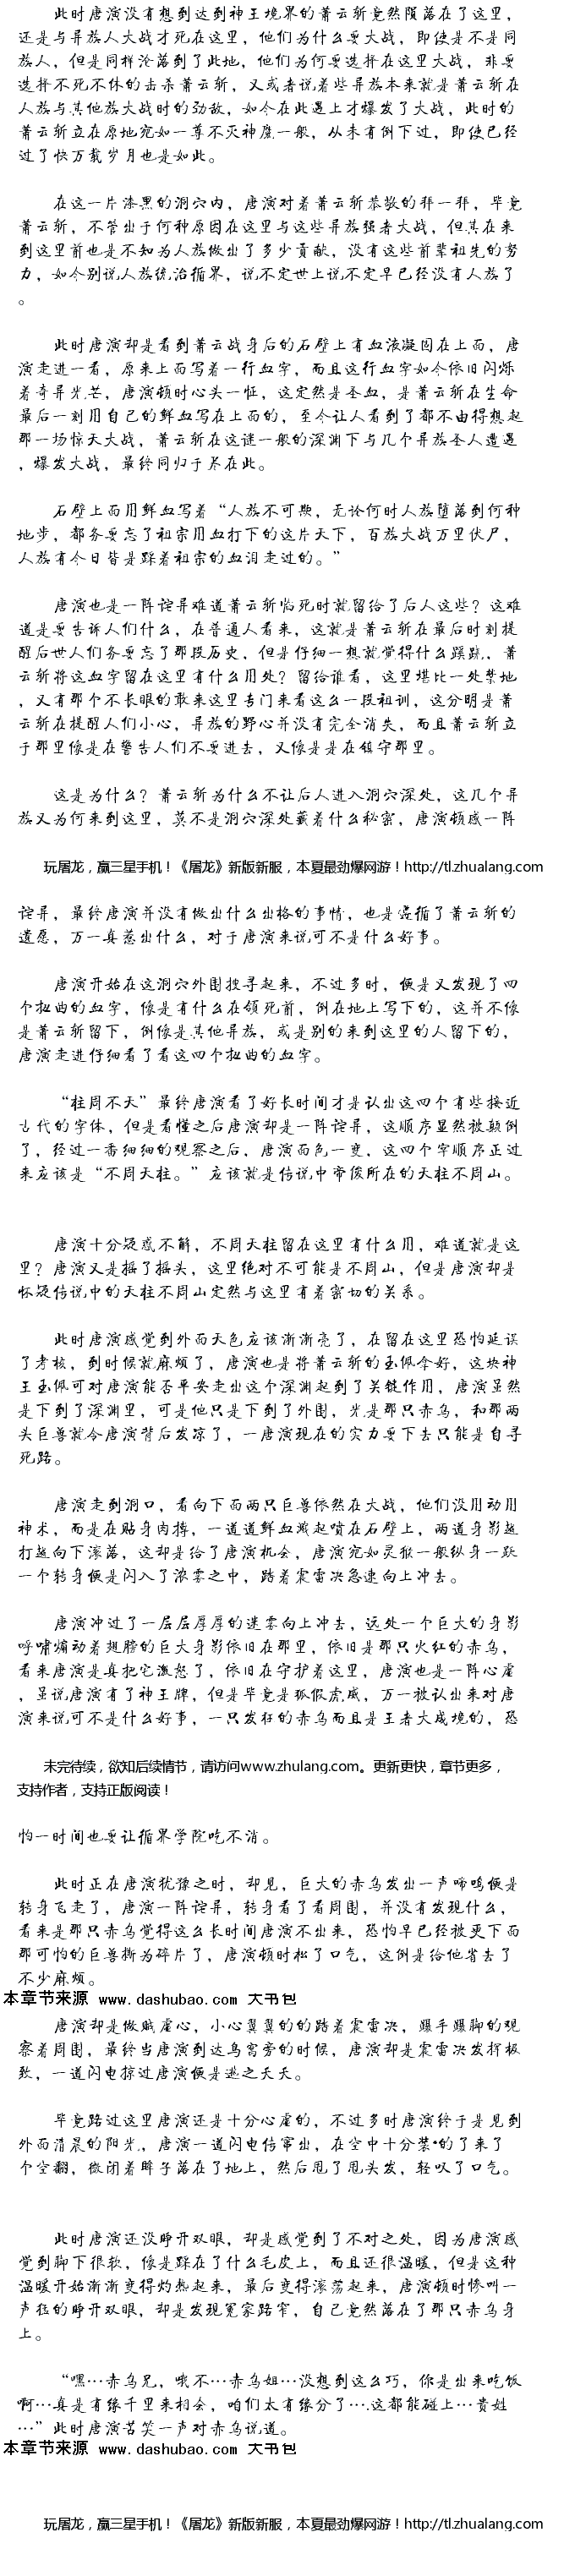 此时唐演没有想到达到神王境界的萧云斩竟然陨落在了这里，
还是与异族人大战才死在这里，他们为什么要大战，即使是不是同
族人，但是同样沦落到了此地，他们为何要选择在这里大战，非要
选择不死不休的击杀萧云斩，又或者说着些异族本来就是萧云斩在
人族与其他族大战时的劲敌，如今在此遇上才爆发了大战，此时的
萧云斩立在原地宛如一尊不灭神魔一般，从未有倒下过，即使已经
过了快万载岁月也是如此。
在这一片漆黑的洞穴内，唐演对着萧云斩恭敬的拜一拜，毕竟
萧云斩，不管出于何种原因在这里与这些异族强者大战，但其在来
到这里前也是不知为人族做出了多少贡献，没有这些前辈祖先的努
力，如今别说人族统治循界，说不定世上说不定早已经没有人族了
。
此时唐演却是看到萧云战身后的石壁上有血液凝固在上面，唐
演走进一看，原来上面写着一行血字，而且这行血字如今依旧闪烁
着奇异光芒，唐演顿时心头一怔，这定然是圣血，是萧云斩在生命
最后一刻用自己的鲜血写在上面的，至今让人看到了都不由得想起
那一场惊天大战，萧云斩在这谜一般的深渊下与几个异族圣人遭遇
，爆发大战，最终同归于尽在此。
石壁上面用鲜血写着“人族不可欺，无论何时人族堕落到何种
地步，都务要忘了祖宗用血打下的这片天下，百族大战万里伏尸，
人族有今日皆是踩着祖宗的血泪走过的。”
唐演也是一阵诧异难道萧云斩临死时就留给了后人这些？这难
道是要告诉人们什么，在普通人看来，这就是萧云斩在最后时刻提
醒后世人们务要忘了那段历史，但是仔细一想就觉得什么蹊跷，萧
云斩将这血字留在这里有什么用处？留给谁看，这里堪比一处禁地
，又有那个不长眼的敢来这里专门来看这么一段祖训，这分明是萧
云斩在提醒人们小心，异族的野心并没有完全消失，而且萧云斩立
于那里像是在警告人们不要进去，又像是是在镇守那里。
这是为什么？萧云斩为什么不让后人进入洞穴深处，这几个异
族又为何来到这里，莫不是洞穴深处藏着什么秘密，唐演顿感一阵
玩屠龙，赢三星手机！《屠龙》新版新服，本夏最劲爆网游！http://tl.zhualang.com
诧异，最终唐演并没有做出什么出格的事情，也是遵循了萧云斩的
遗愿，万一真惹出什么，对于唐演来说可不是什么好事。
唐演开始在这洞穴外围搜寻起来，不过多时，便是又发现了四
个扭曲的血字，像是有什么在领死前，倒在地上写下的，这并不像
是萧云斩留下，倒像是其他异族，或是别的来到这里的人留下的，
唐演走进仔细看了看这四个扭曲的血字。
“柱周不天”最终唐演看了好长时间才是认出这四个有些接近
古代的字体，但是看懂之后唐演却是一阵诧异，这顺序显然被颠倒
了，经过一番细细的观察之后，唐演面色一变，这四个字顺序正过
来应该是“不周天柱。”应该就是传说中帝俊所在的天柱不周山。
唐演十分疑惑不解，不周天柱留在这里有什么用，难道就是这
里？唐演又是摇了摇头，这里绝对不可能是不周山，但是唐演却是
怀疑传说中的天柱不周山定然与这里有着密切的关系。
此时唐演感觉到外面天色应该渐渐亮了，在留在这里恐怕延误
了考核，到时候就麻烦了，唐演也是将萧云斩的玉佩拿好，这块神
王玉佩可对唐演能否平安走出这个深渊起到了关键作用，唐演虽然
是下到了深渊里，可是他只是下到了外围，光是那只赤乌，和那两
头巨兽就令唐演背后发凉了，一唐演现在的实力要下去只能是自寻
死路。
唐演走到洞口，看向下面两只巨兽依然在大战，他们没用动用
神术，而是在贴身肉搏，一道道鲜血溅起喷在石壁上，两道身影越
打越向下滚落，这却是给了唐演机会，唐演宛如灵猴一般纵身一跃
一个转身便是闪入了浓雾之中，踏着震雷决急速向上冲去。
唐演冲过了一层层厚厚的迷雾向上冲去，远处一个巨大的身影
呼啸煽动着翅膀的巨大身影依旧在那里，依旧是那只火红的赤乌，
看来唐演是真把它激怒了，依旧在守护着这里，唐演也是一阵心虚
，虽说唐演有了神王牌，但是毕竟是狐假虎威，万一被认出来对唐
演来说可不是什么好事，一只发狂的赤乌而且是王者大成境的，恐
未完待续，欲知后续情节，请访问www.zhulang.com。更新更快，章节更多，
支持作者，支持正版阅读！
怕一时间也要让循界学院吃不消。
此时正在唐演犹豫之时，却见，巨大的赤乌发出一声啼鸣便是
转身飞走了，唐演一阵诧异，转身看了看周围，并没有发现什么，
看来是那只赤乌觉得这么长时间唐演不出来，恐怕早已经被更下面
那可怕的巨兽撕为碎片了，唐演顿时松了口气，这倒是给他省去了
不少麻烦。
本章节来源 www.dashubao.com 大书包
唐演却是做贼虚心，小心翼翼的的踏着震雷决，蹑手蹑脚的观
察着周围，最终当唐演到达鸟窝旁的时候，唐演却是震雷决发挥极
致，一道闪电掠过唐演便是逃之夭夭。
毕竟路过这里唐演还是十分心虚的，不过多时唐演终于是见到
外面清晨的阳光，唐演一道闪电传窜出，在空中十分装*的了来了
个空翻，微闭着眸子落在了地上，然后甩了甩头发，轻叹了口气。
此时唐演还没睁开双眼，却是感觉到了不对之处，因为唐演感
觉到脚下很软，像是踩在了什么毛皮上，而且还很温暖，但是这种
温暖开始渐渐变得灼热起来，最后变得滚荡起来，唐演顿时惨叫一
声猛的睁开双眼，却是发现冤家路窄，自己竟然落在了那只赤乌身
上。
“嘿…赤乌兄，哦不…赤乌姐…没想到这么巧，你是出来吃饭
啊…真是有缘千里来相会，咱们太有缘分了….这都能碰上…贵姓
…”此时唐演苦笑一声对赤乌说道。
本章节来源 www.dashubao.com 大书包
玩屠龙，赢三星手机！《屠龙》新版新服，本夏最劲爆网游！http://tl.zhualang.com